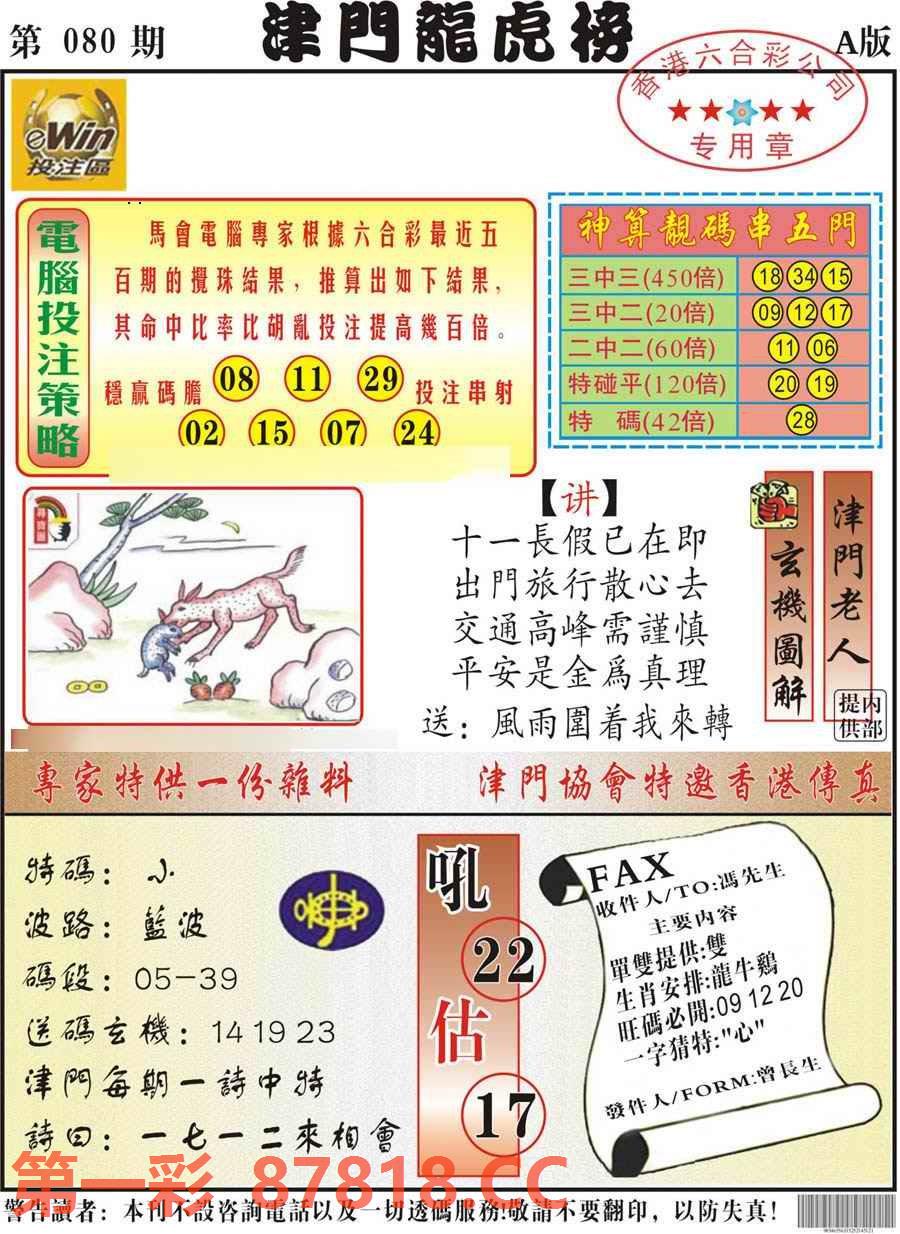 第 080 期
津門龍虎榜
A版
香港六合彩公司
专用章
eWin
投注區
電腦投注策略
馬會電腦專家根據六合彩最近五
百期的攪珠結果，推算出如下結果，
其命中比率比胡亂投注提高幾百倍。
穩贏碼膽 08 11 29 投注串射
02 15 07 24
神算靚碼串五門
三中三(450倍) 18 34 15
三中二(20倍) 09 12 17
二中二(60倍) 11 06
特碰平(120倍) 20 19
特 碼(42倍) 28
尋寶圖
【讲】
十一長假已在即
出門旅行散心去
交通高峰需謹慎
平安是金爲真理
送：風雨圍着我來轉
玄機圖解
津門老人
内部提供
專家特供一份雜料
津門協會特邀香港傳真
特碼：小
波路：藍波
碼段：05-39
送碼玄機：14 19 23
津門每期一詩中特
詩曰：一七一二來相會
吼
22
估
17
FAX
收件人/TO:馮先生
主要内容
單雙提供:雙
生肖安排:龍牛鷄
旺碼必開:09 12 20
一字猜特:"心"
發件人/FORM:曾長生
第一彩 87818.CC
警告讀者：本刊不設咨詢電話以及一切透碼服務!敬請不要翻印，以防失真!